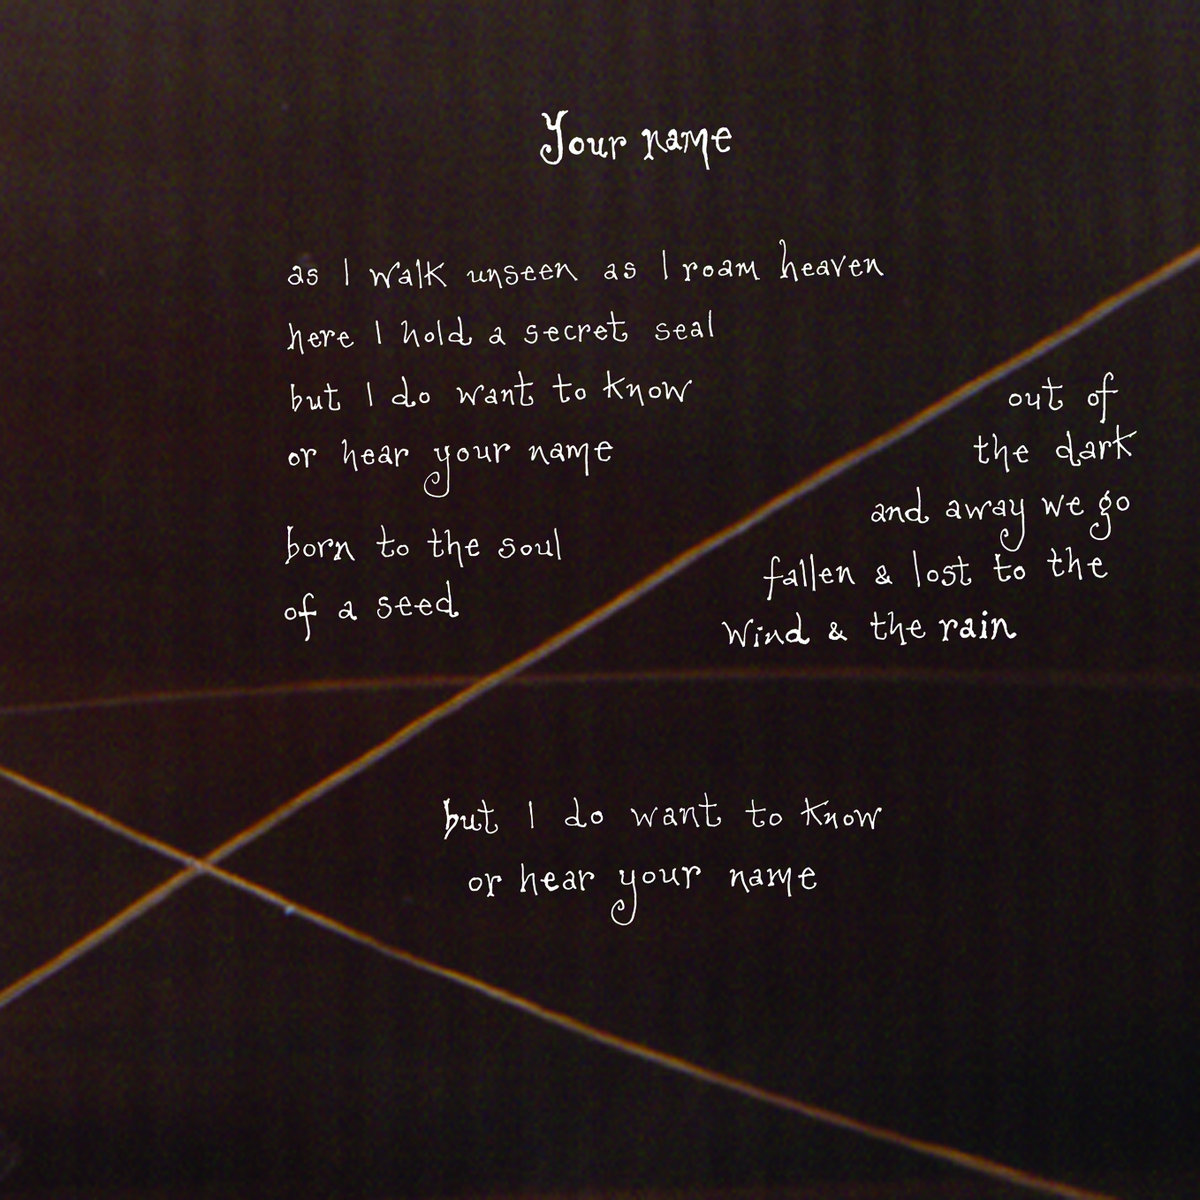 Your name
as I walk unseen as I roam heaven
here I hold a secret seal
but I do want to know
or hear your name
born to the soul
of a seed
out of
the dark
and away we go
fallen & lost to the
wind & the rain
but I do want to know
or hear your name